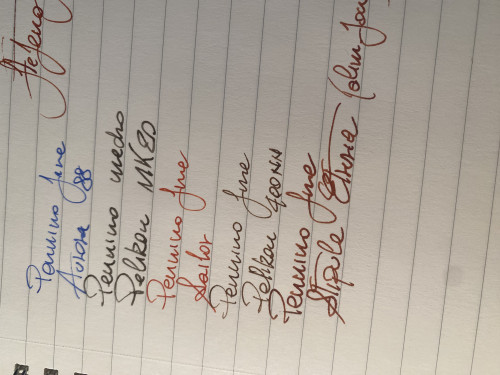 Pennino fine
Aurora 88
Pennino medio
Pelikan MK20
Pennino fine
Sailor
Pennino fine
Pelikan 400NN
Pennino fine
Stipula Etruria